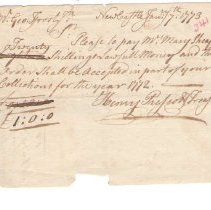 Mr. Geo: Frost Jr. New Castle Jany. 7th. 1773
Sr.
Please to pay Mrs. Mary
Twenty Shillings Lawfull Money and this
Order Shall be Accepted in part of your
Collections for the year 1772.
Henry Prescott
£1:0:0